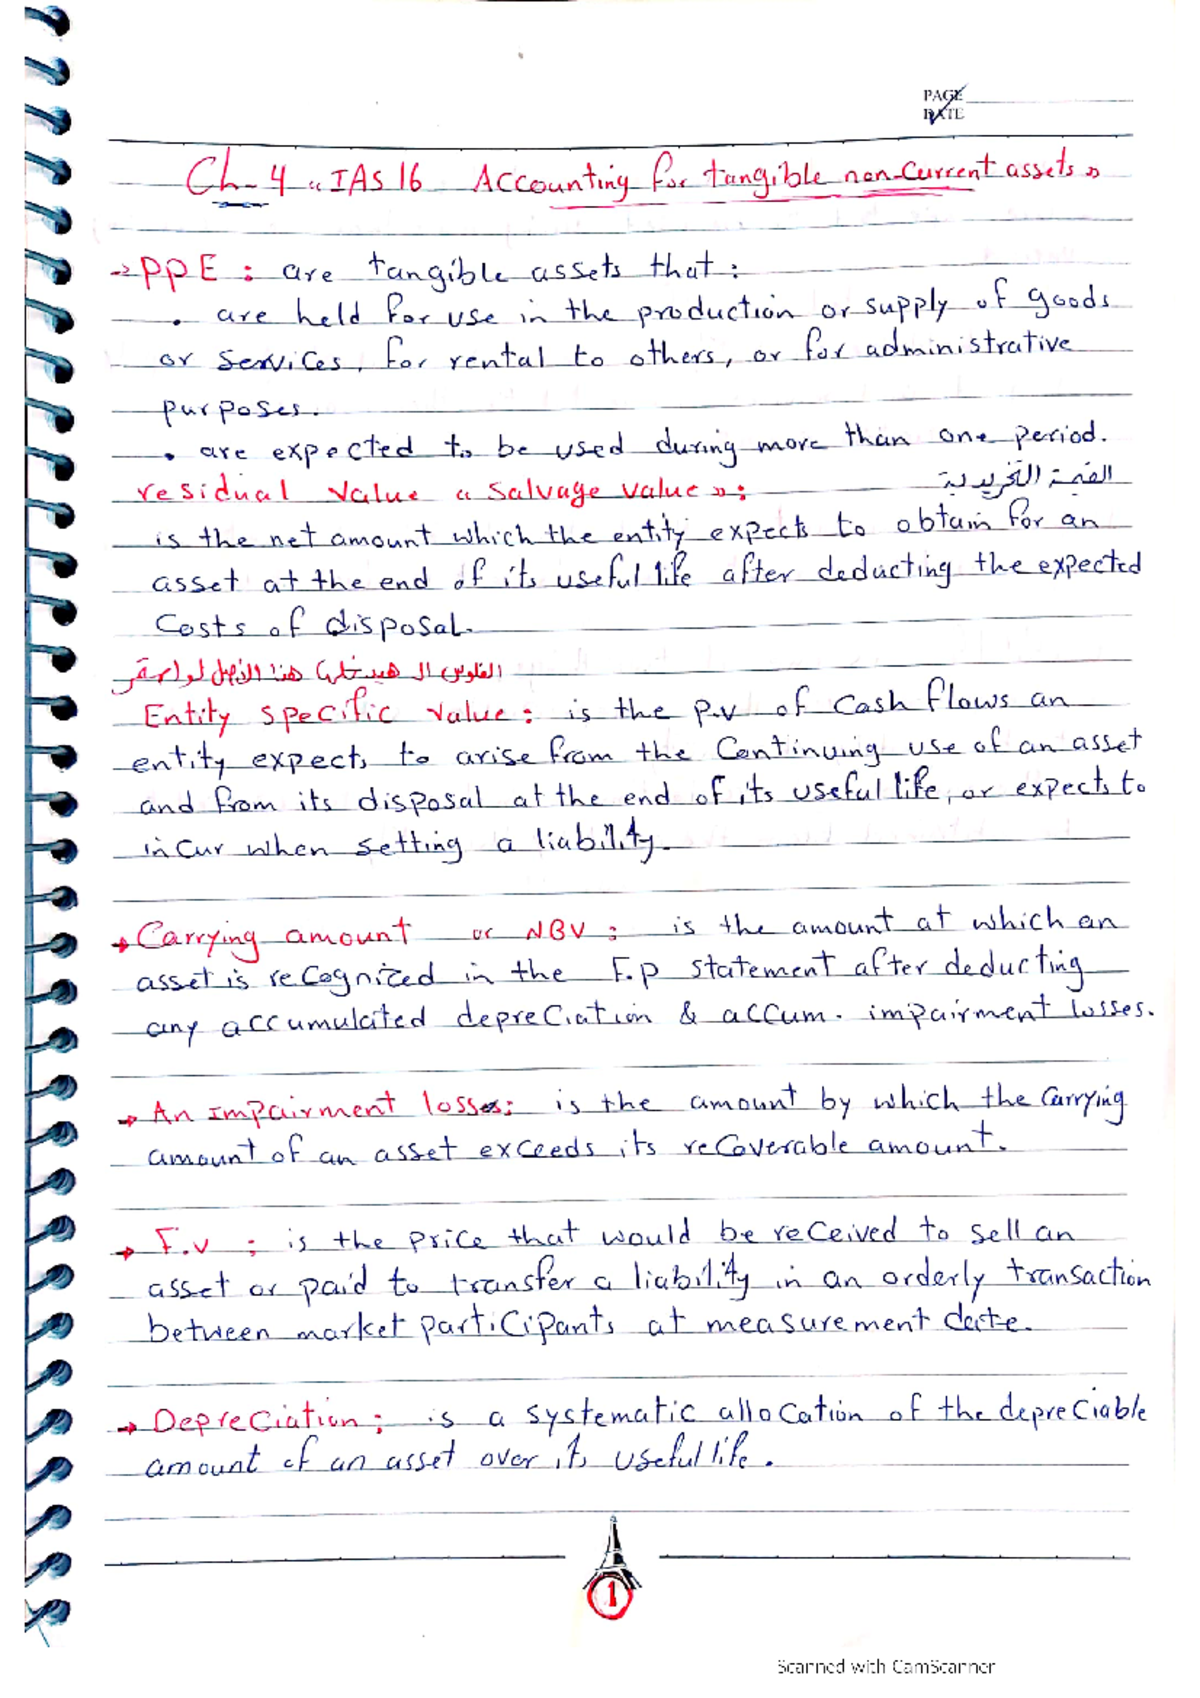 PAGE
DATE
Ch-4 « IAS 16 Accounting for tangible non-current assets »
→ PPE : are tangible assets that :
• are held for use in the production or supply of goods
or services, for rental to others, or for administrative
purposes.
• are expected to be used during more than one period.
residual value « Salvage value » : القيمة التخريدية
is the net amount which the entity expects to obtain for an
asset at the end of its useful life after deducting the expected
Costs of disposal.
الفلوس ال هنا الأصل
Entity specific value : is the p.v of cash flows an
entity expects to arise from the Continuing use of an asset
and from its disposal at the end of its useful life, or expects to
incur when setting a liability.
→ Carrying amount or NBV : is the amount at which an
asset is recognized in the F.p statement after deducting
any accumulated depreciation & accum. impairment losses.
→ An Impairment losses: is the amount by which the Carrying
amount of an asset exceeds its recoverable amount.
→ F.v : is the price that would be received to sell an
asset or paid to transfer a liability in an orderly transaction
between market participants at measurement date.
→ Depreciation : is a systematic allocation of the depreciable
amount of an asset over its useful life.
1
Scanned with CamScanner